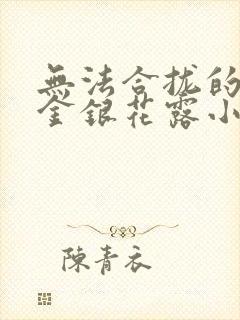 無法合拢的
金銀花露小
陳青衣